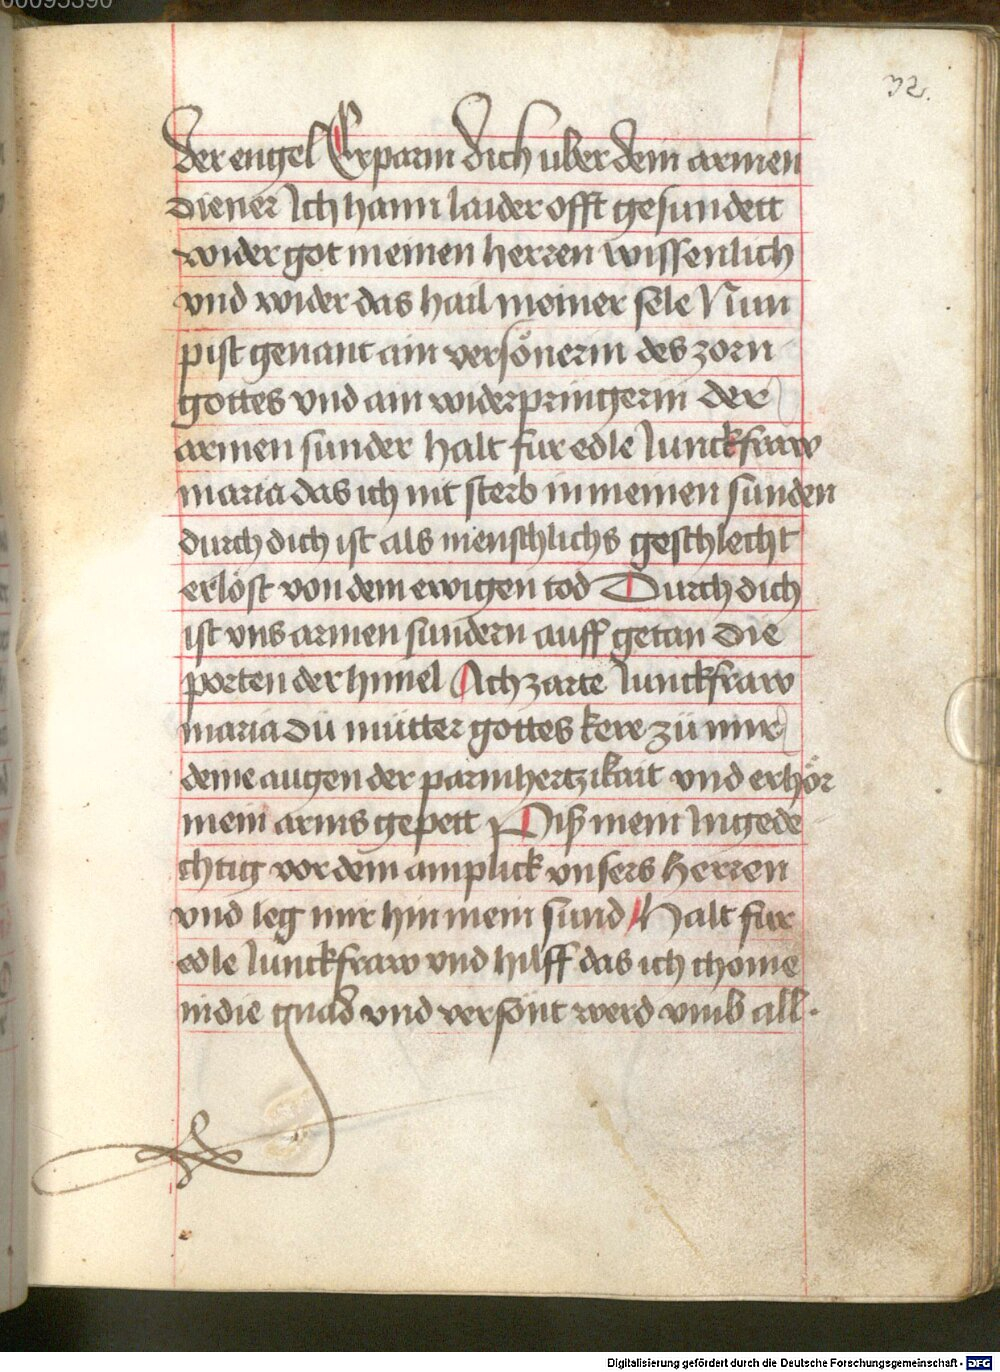 32.
der engel Erparm dich uber dein armen
diener Ich hann laider offt gesundett
wider got meinen herren wissenlich
vnd wider das hail meiner sele Nun
pist genant ain versönerin des zorn
gottes vnd ain widerpringerin der
armen sunder halt fur edle Junckfraw
maria das ich nit sterb in meinen sunden
durch dich ist als menschlichs geschlecht
erlöst von dem ewigen tod Durch dich
ist vns armen sundern auff getan die
porten der himel Ach zarte Junckfraw
maria dů můtter gottes kere zů mir
deine augen der parmhertzikait vnd erhör
mein arms gepett Piß mein Ingede
chtig vor dem amplick vnsers herren
vnd leg mir hin mein sund Halt fur
edle Junckfraw vnd hilff das ich chome
in die gnad vnd versönt werd vmb all·
Digitalisierung gefördert durch die Deutsche Forschungsgemeinschaft - DFG